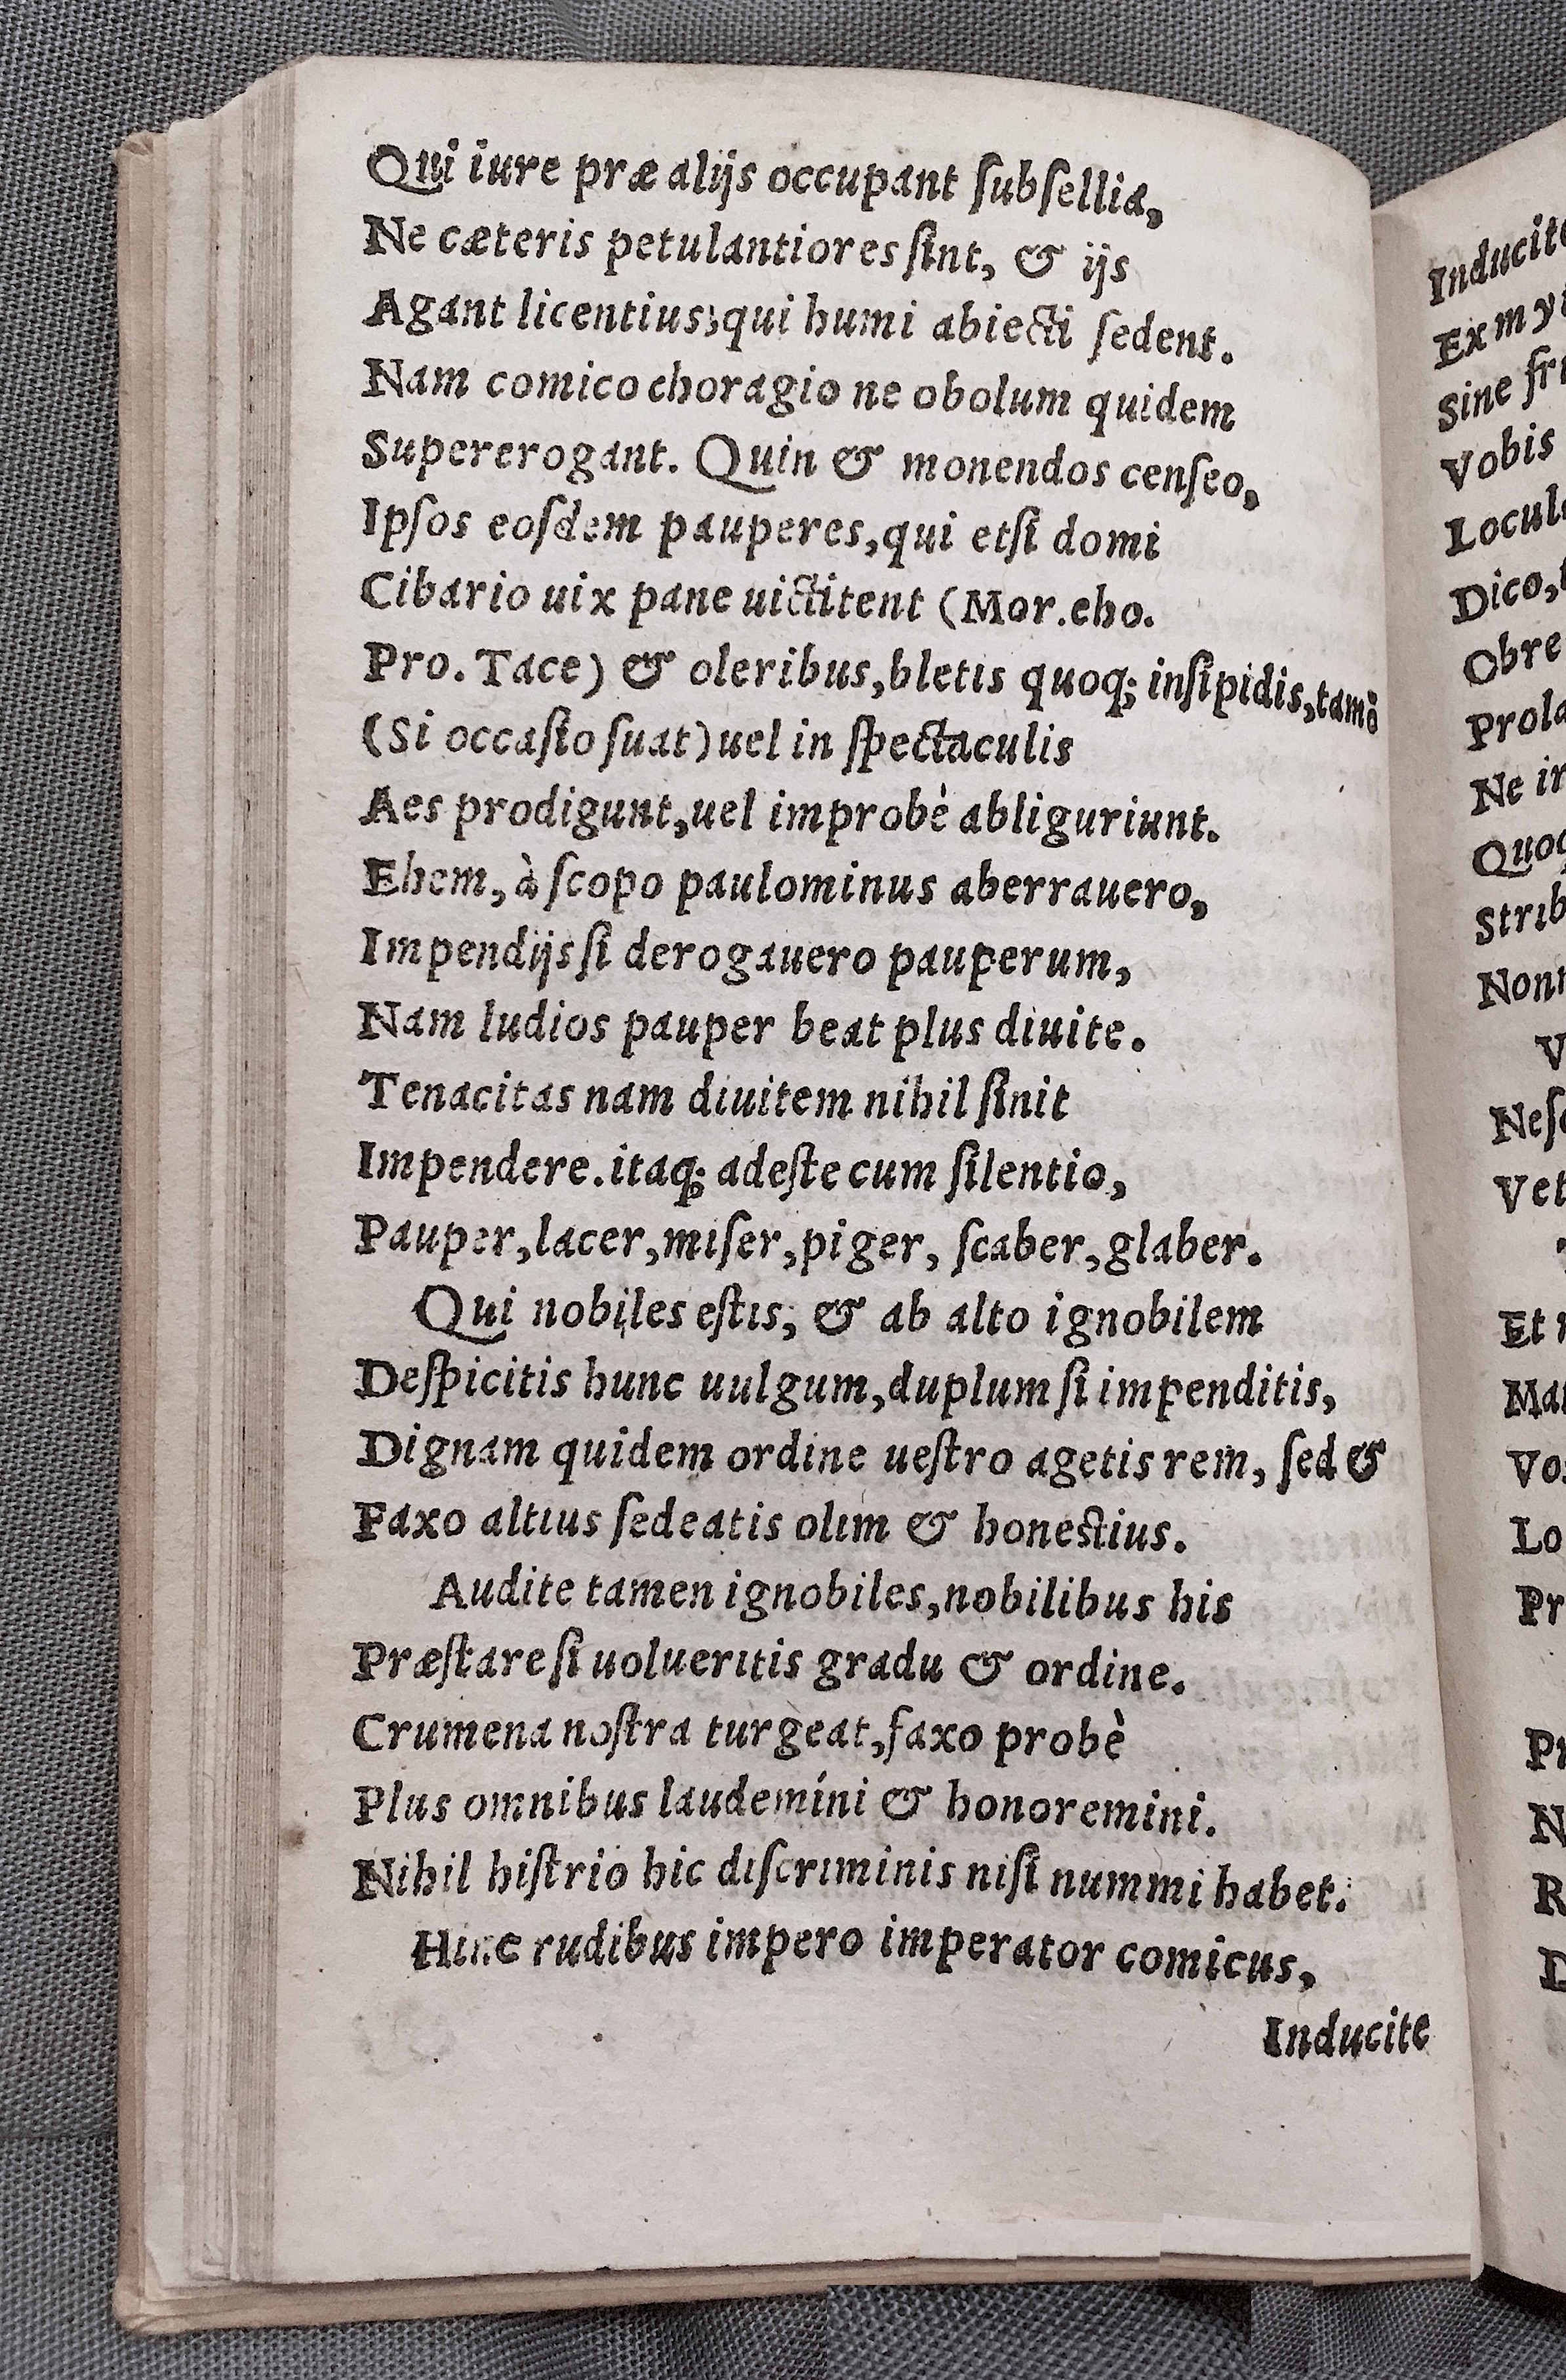 Qui iure præ alijs occupant ſubſellia,
Ne cæteris petulantiores ſint, & ijs
Agant licentius; qui humi abiecti ſedent.
Nam comico choragio ne obolum quidem
Supererogant. Quin & monendos cenſeo,
Ipſos eoſdem pauperes, qui etſi domi
Cibario uix pane uictitent (Mor. eho.
Pro. Tace) & oleribus, bletis quoq; inſipidis,
(Si occaſio ſuat) uel in ſpectaculis
Aes prodigunt, uel improbè abliguriunt.
Ehem, à ſcopo paulominus aberrauero,
Impendijs ſi derogauero pauperum,
Nam ludios pauper beat plus diuite.
Tenacitas nam diuitem nihil ſinit
Impendere. itaq; adeſte cum ſilentio,
Pauper, lacer, miſer, piger, ſcaber, glaber.
Qui nobiles eſtis, & ab alto ignobilem
Deſpicitis hunc uulgum, duplum ſi impenditis,
Dignam quidem ordine ueſtro agetis rem, ſed &
Faxo altius ſedeatis olim & honeſtius.
Audite tamen ignobiles, nobilibus his
Præſtare ſi uolueritis gradu & ordine.
Crumena noſtra turgeat, faxo probè
Plus omnibus laudemíni & honoremini.
Nihil hiſtrio hic diſcriminis niſi nummi habet.
Hinc rudibus impero imperator comicus,
Inducite
Sine
Vobis
Dico,
Ne
Et